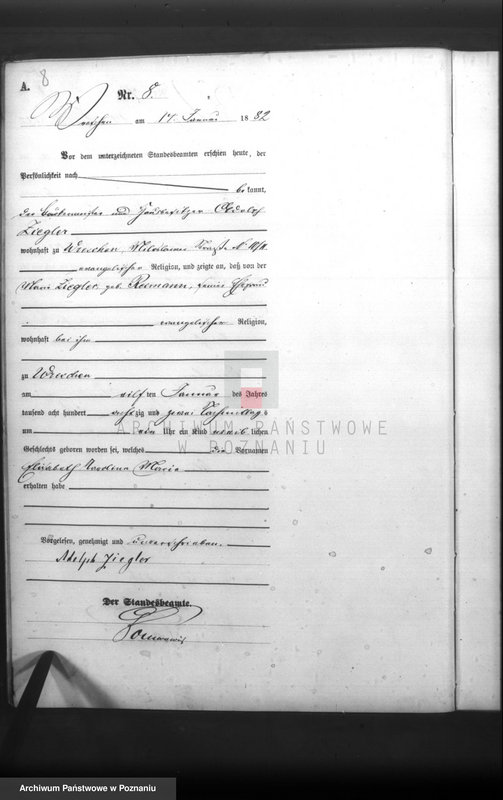 A.
8
Nr. 8.
Wreschen am 17. Januar 1882
Vor dem unterzeichneten Standesbeamten erschien heute, der
Persönlichkeit nach
bekannt,
der und Hausbesitzer Adolph
Ziegler
wohnhaft zu Wreschen,
evangelischer Religion, und zeigte an, daß von der
Marie Ziegler geb. seiner Ehefrau
evangelischer Religion,
wohnhaft bei ihm
zu Wreschen
am elften Januar des Jahres
tausend acht hundert achtzig und zwei Nachmittags
um ein Uhr ein Kind weiblichen
Geschlechts geboren worden sei, welches die Vornamen
Elisabeth Marie
erhalten habe
Vorgelesen, genehmigt und unterschrieben.
Adolph Ziegler
Der Standesbeamte.
ARCHIWUM PAŃSTWOWE
W POZNANIU
Archiwum Państwowe w Poznaniu